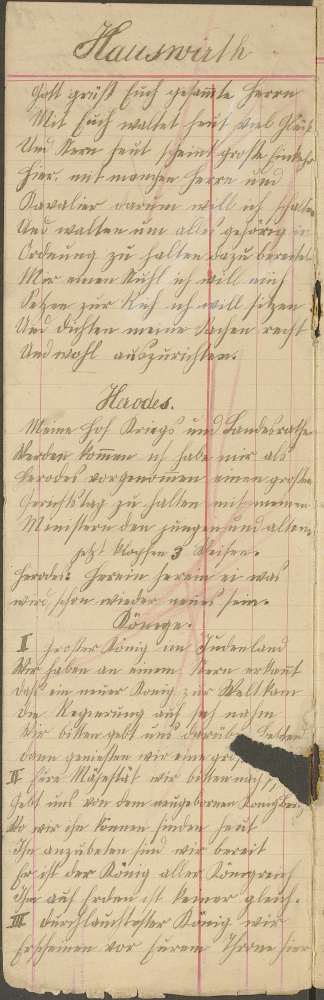 Hauswirth
Gott grüßt Euch gesamte Herrn
Mit Euch waltet heut viel Glück
Und Stern heut scheint große
Hier. mit manchen Herrn und
Kavalier darum will ich
Und walten um alles gehörig in
Ordnung zu halten dazu bereitet
Mir einen Stuhl ich will mich
setzen zur Ruh ich will sitzen
Und dichten meine Sachen recht
Und wohl auszurichten.
Herodes.
Meine Hof Kriegs und Landesräthe
werden kommen ich habe mir als
Herodes vorgenommen einen großen
Gerichtstag zu halten mit meinen
Ministern den jungen und alten
jetzt klopfen 3 Weisen.
Herodes: Herein herein ei was
wird schon wieder neues sein.
Könige.
I Großer König im Judenland
Wir haben an einem Stern erkant
Daß ein neuer König zur Welt kam
die Regierung auf sich nahm
Wir bitten gebt uns darüber
dann genießen wir eine
II Eure Mäjestät wir bitten noch
Gebt uns von dem neugebornen
Wo wir ihn können finden heut
Ihn anzubeten sind wir bereit
Er ist der König aller Königreich
Ihm auf Erden ist keiner gleich.
III Durchlauchtester König wir
Erscheinen vor Eurem Throne hier